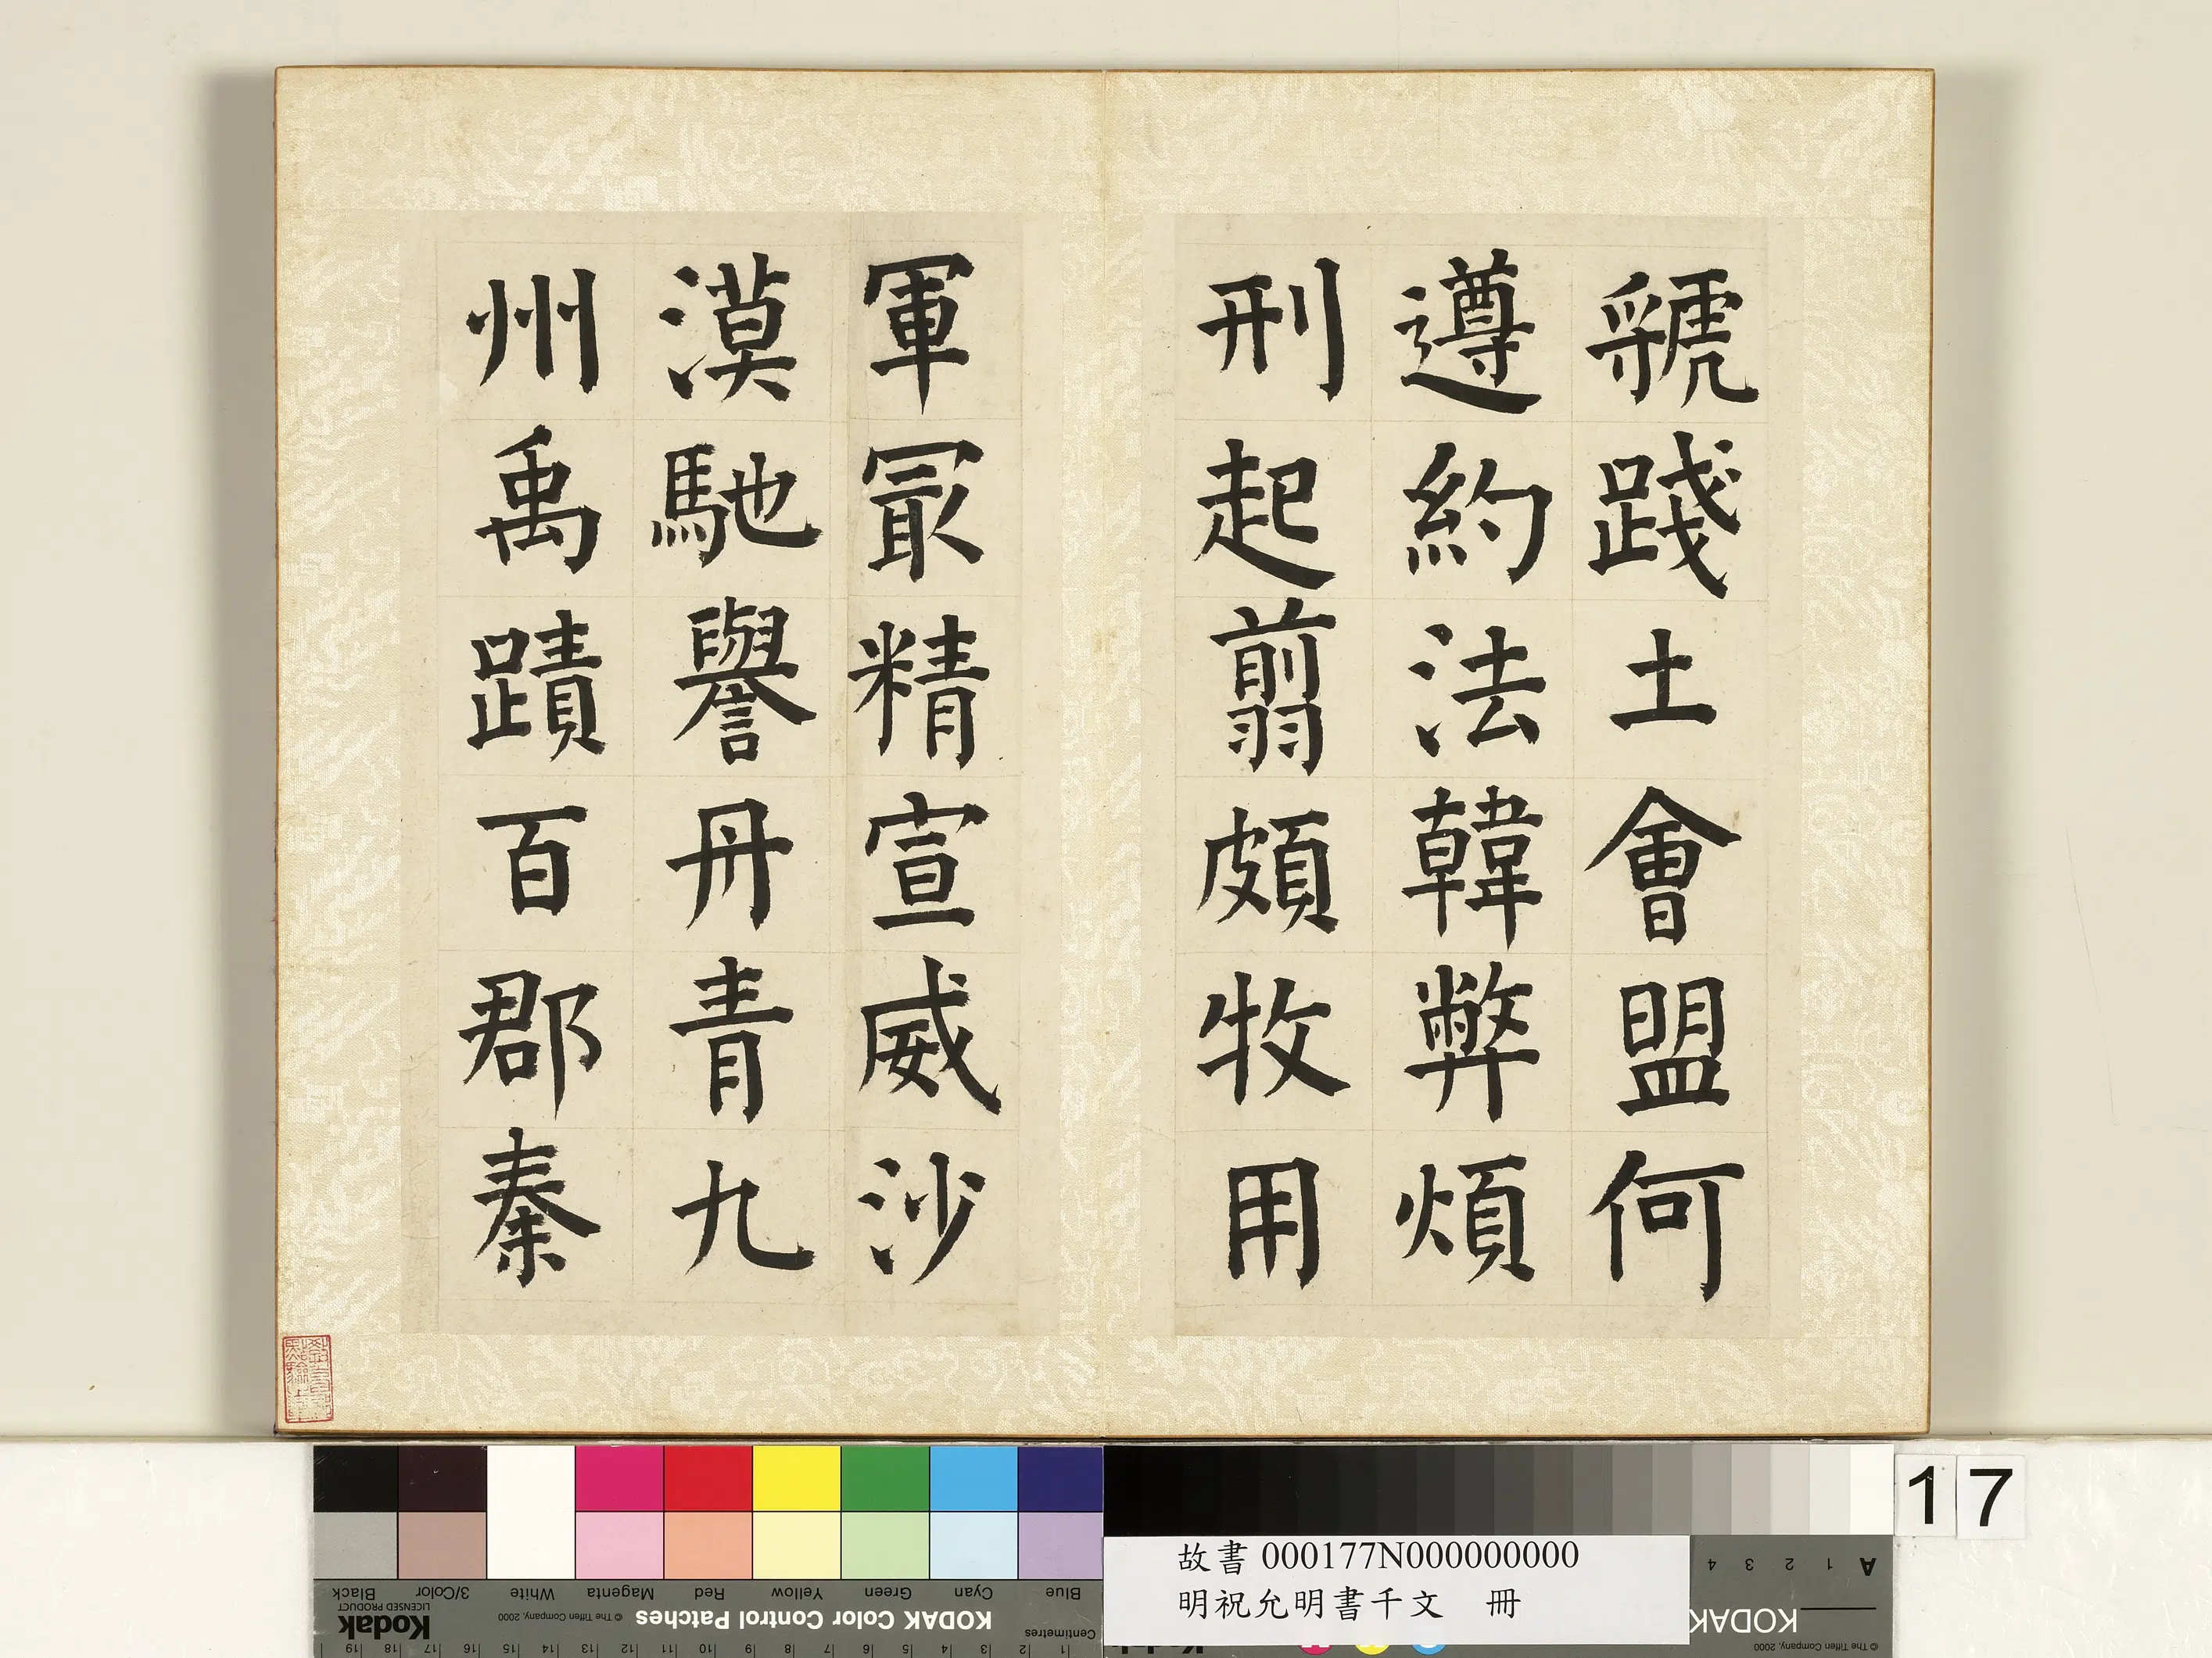 虢踐土會盟何
遵約法韓弊煩
刑起翦頗牧用
軍冣精宣威沙
漠馳譽丹青九
州禹蹟百郡秦
17
故書 000177N000000000
明祝允明書千文 冊
Black 3/Color White Magenta Red Yellow Green Cyan Blue
Kodak
LICENSED PRODUCT
© The Tiffen Company, 2000
KODAK Color Control Patches
Centimetres
19 18 17 16 15 14 13 12 11 10 9 8 7 6 5 4 3 2 1
A 1 2 3 4
KODAK
© The Tiffen Company, 2000